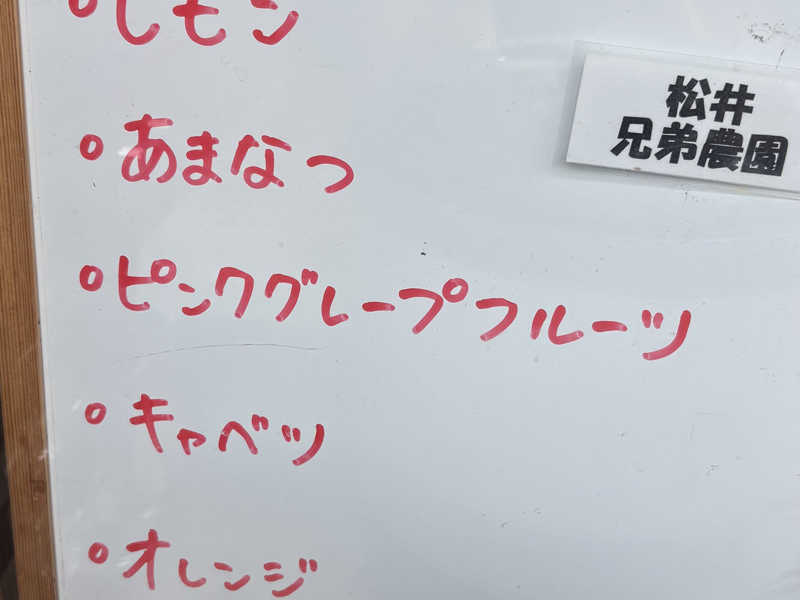 。レモン
。あまなつ
。ピンクグレープフルーツ
。キャベツ
。オレンジ
松井
兄弟農園